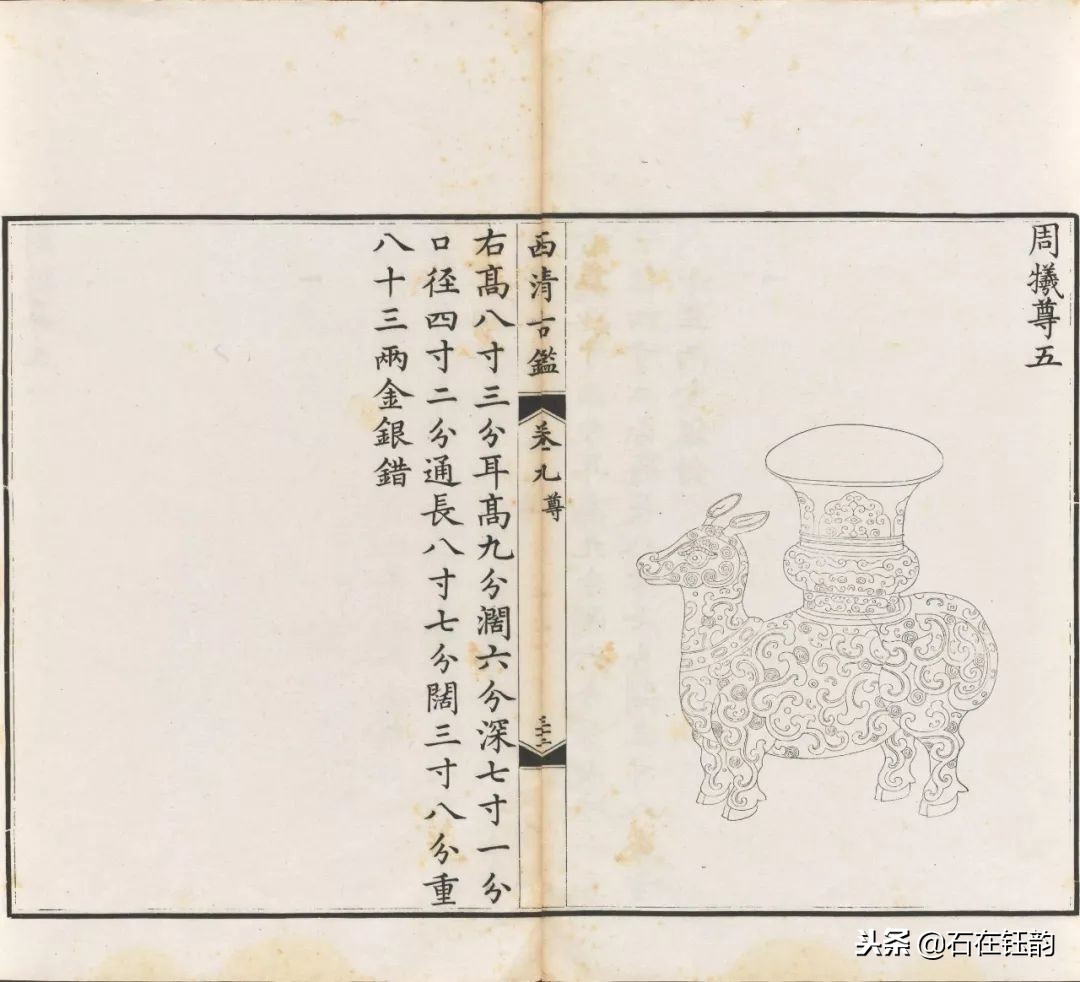 周犧尊五
西清古鑑
卷九 尊
三十二
右高八寸三分耳高九分濶六分深七寸一分
口径四寸二分通長八寸七分闊三寸八分重
八十三兩金銀錯
头条 @石在钰韵